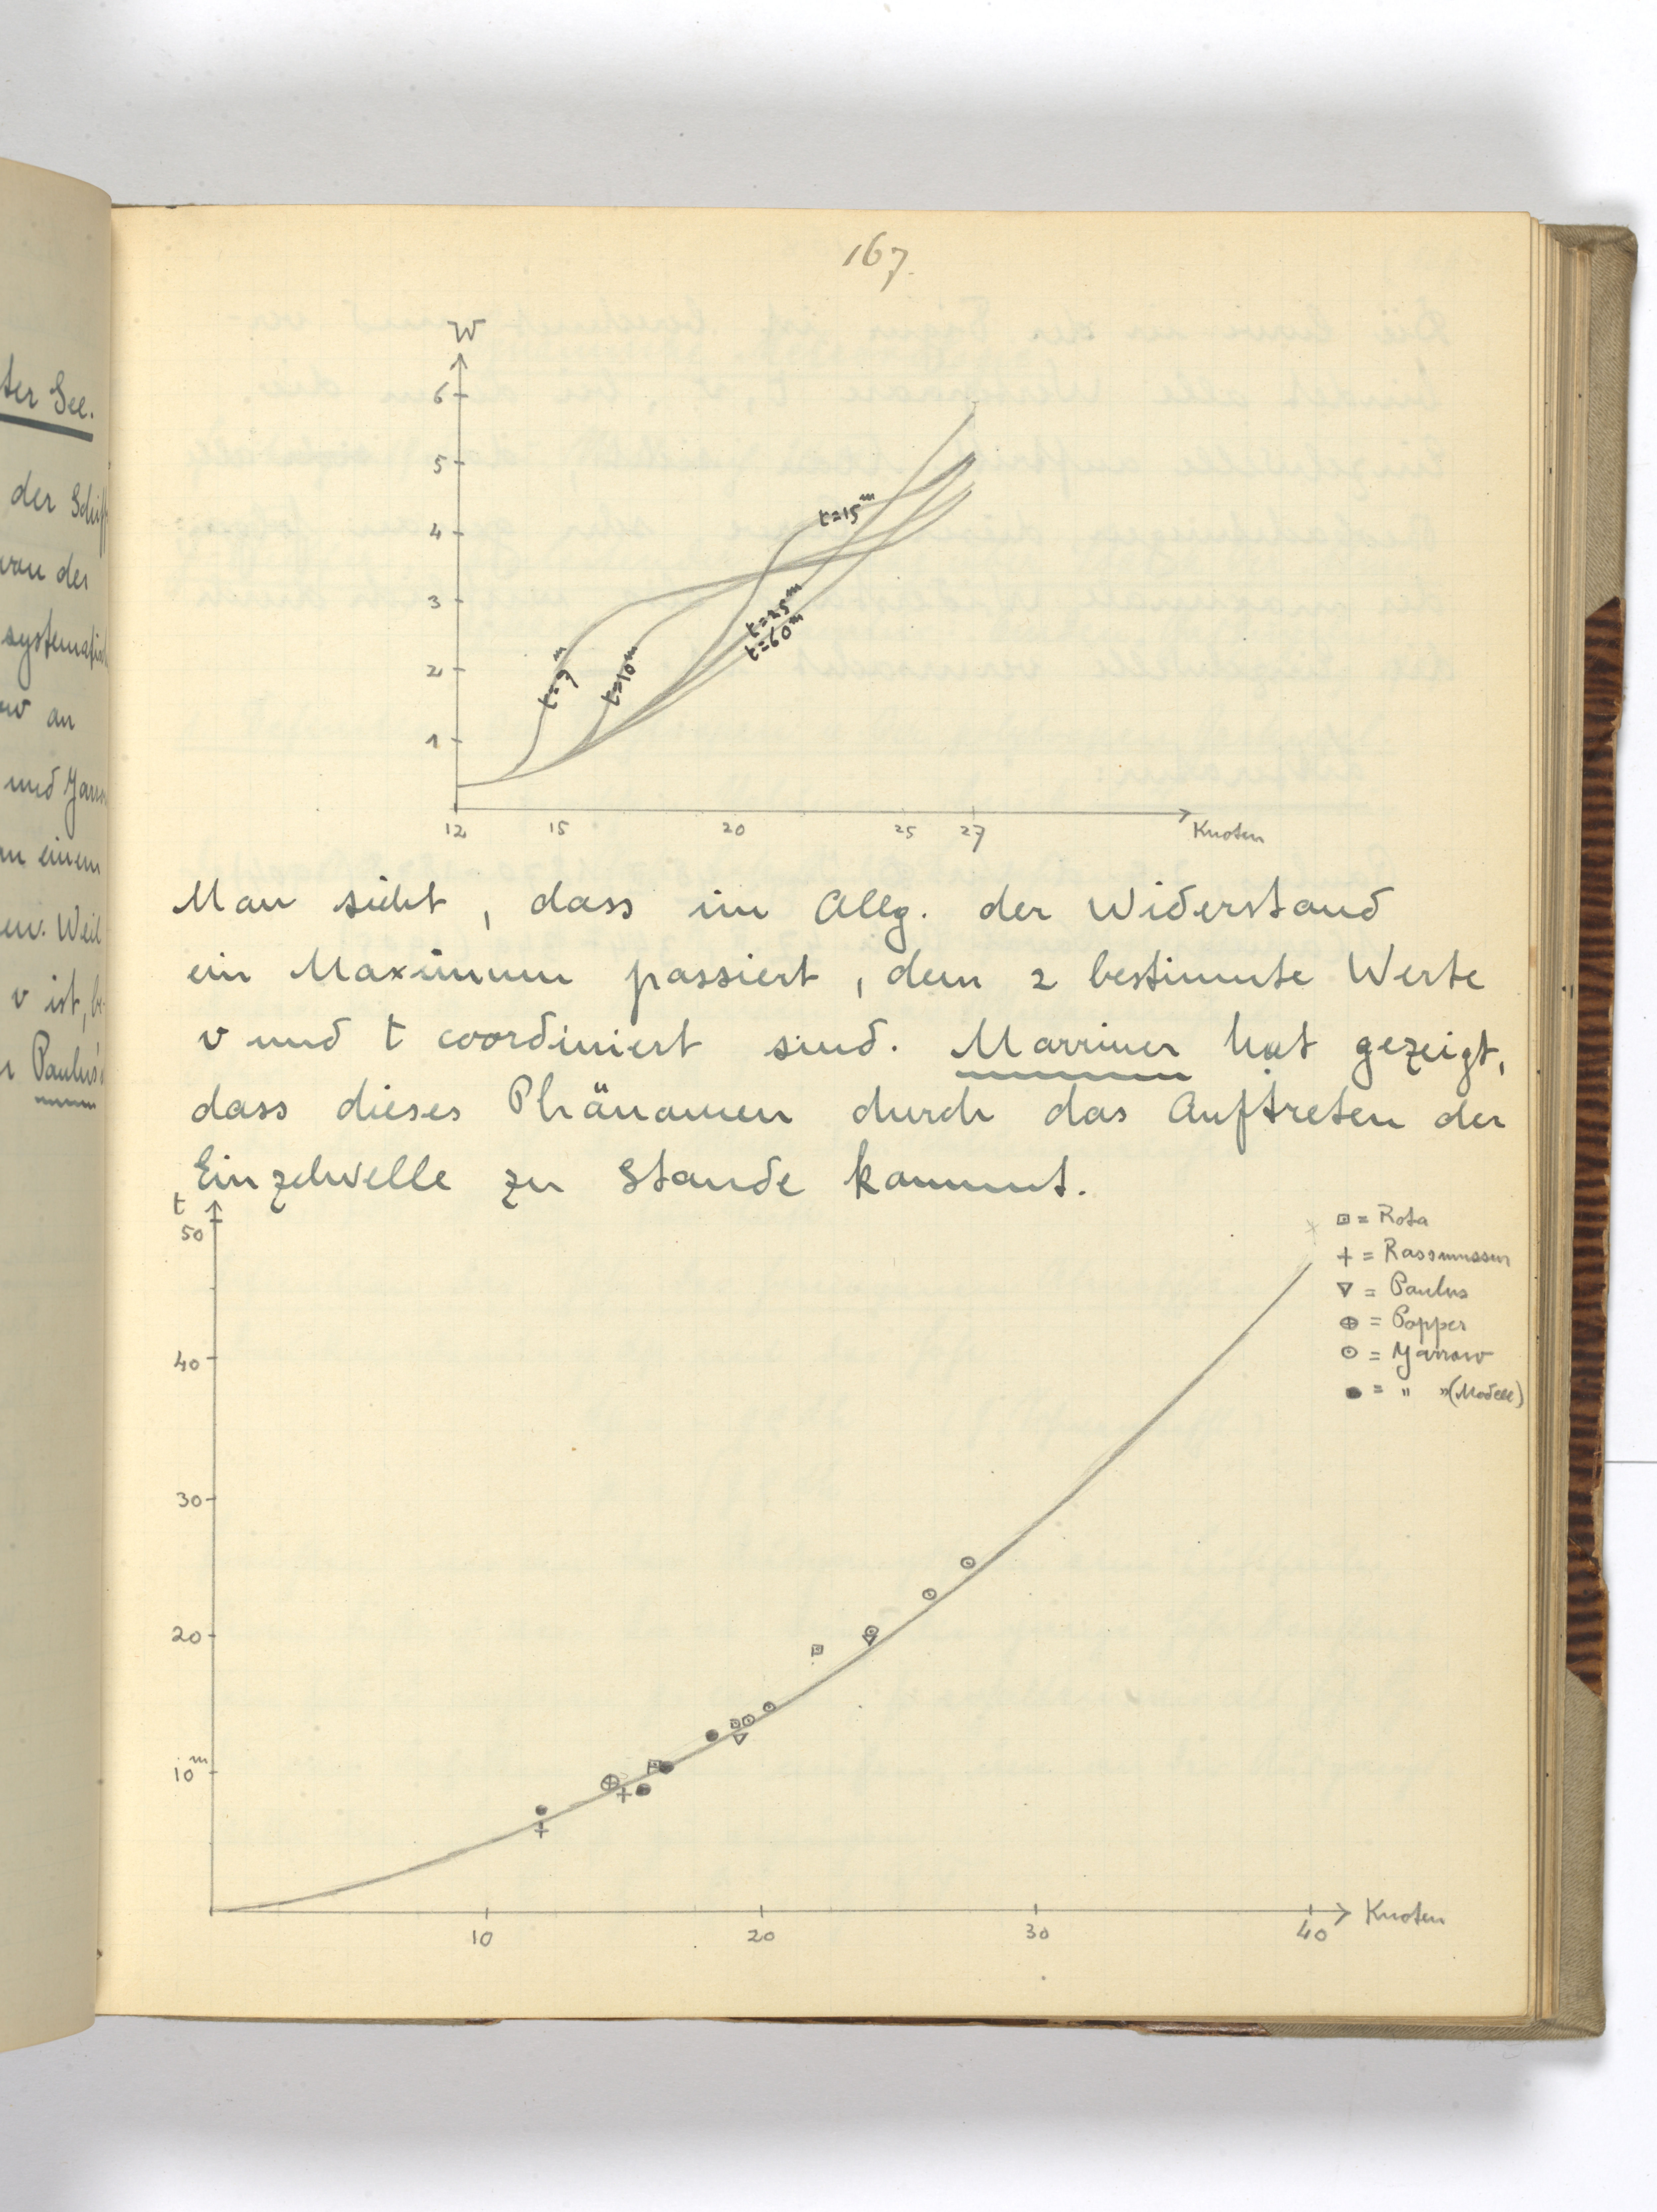 167.
ter See.
der Schiff
von der
systematisch
an
und Yarrow
an einem
en. Weil
v ist, be-
r Paulus'
W
6
5
4
3
2
1
t=15m
t=25m
t=60m
t=9m
t=10m
12 15 20 25 27 Knoten
Man sieht, dass im Allg. der Widerstand
ein Maximum passiert, dem 2 bestimmte Werte
v und t coordiniert sind. Marriner hat gezeigt,
dass dieses Phänomen durch das Auftreten der
Einzelwelle zu Stande kommt.
t
50
40
30
20
10m
□ = Rota
+ = Rassmussen
▽ = Paulus
⊕ = Popper
⊙ = Yarrow
● = " "(Modell)
10 20 30 40 Knoten